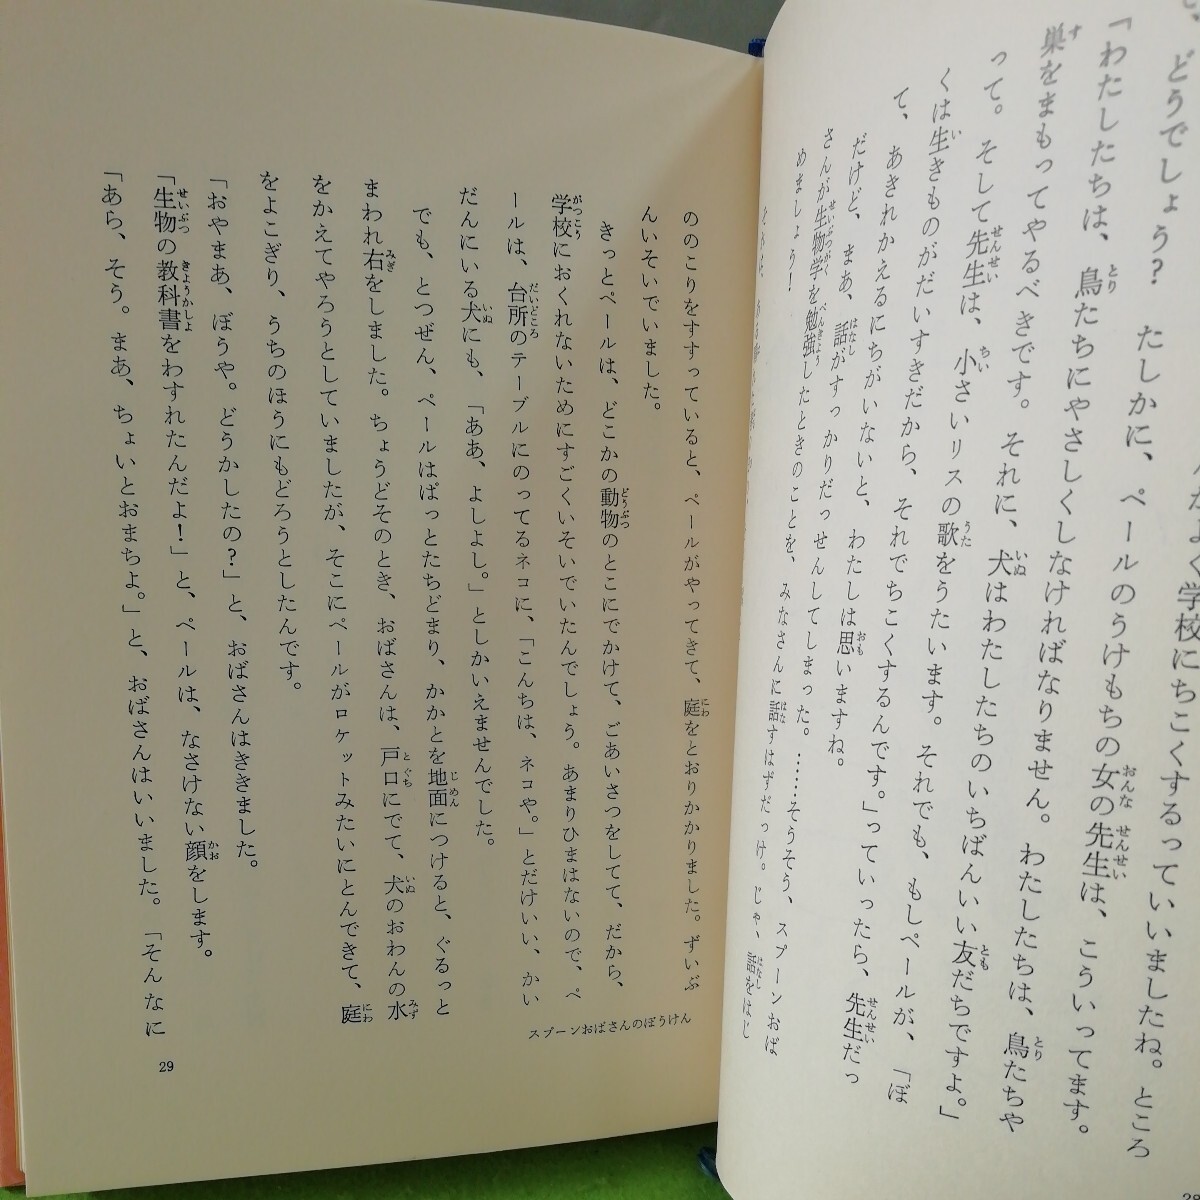 んがよく学校にちこくするっていいましたね。ところ
、どうでしょう？　たしかに、ペールのうけもちの女の先生は、こういってます。
「わたしたちは、鳥たちにやさしくしなければなりません。わたしたちは、鳥たちや
巣をまもってやるべきです。それに、犬はわたしたちのいちばんいい友だちですよ。」
って。そして先生は、小さいリスの歌をうたいます。それでも、もしペールが、「ぼ
くは生きものがだいすきだから、それでちこくするんです。」っていったら、先生だっ
て、あきれかえるにちがいないと、わたしは思いますね。
だけど、まあ、話がすっかりだっせんしてしまった。……そうそう、スプーンおば
さんが生物学を勉強したときのことを、みなさんに話すはずだっけ。じゃ、話をはじ
めましょう！
ののこりをすすっていると、ペールがやってきて、庭をとおりかかりました。ずいぶ
んいそいでいました。
きっとペールは、どこかの動物のとこにでかけて、ごあいさつをしてて、だから、
学校におくれないためにすごくいそいでいたんでしょう。あまりひまはないので、ペ
ールは、台所のテーブルにのってるネコに、「こんちは、ネコや。」とだけいい、かい
だんにいる犬にも、「ああ、よしよし。」としかいえませんでした。
でも、とつぜん、ペールはぱっとたちどまり、かかとを地面につけると、ぐるっと
まわれ右をしました。ちょうどそのとき、おばさんは、戸口にでて、犬のおわんの水
をかえてやろうとしていましたが、そこにペールがロケットみたいにとんできて、庭
をよこぎり、うちのほうにもどろうとしたんです。
「おやまあ、ぼうや。どうかしたの？」と、おばさんはききました。
「生物の教科書をわすれたんだよ！」と、ペールは、なさけない顔をします。
「あら、そう。まあ、ちょいとおまちよ。」と、おばさんはいいました。「そんなに
スプーンおばさんのぼうけん
29